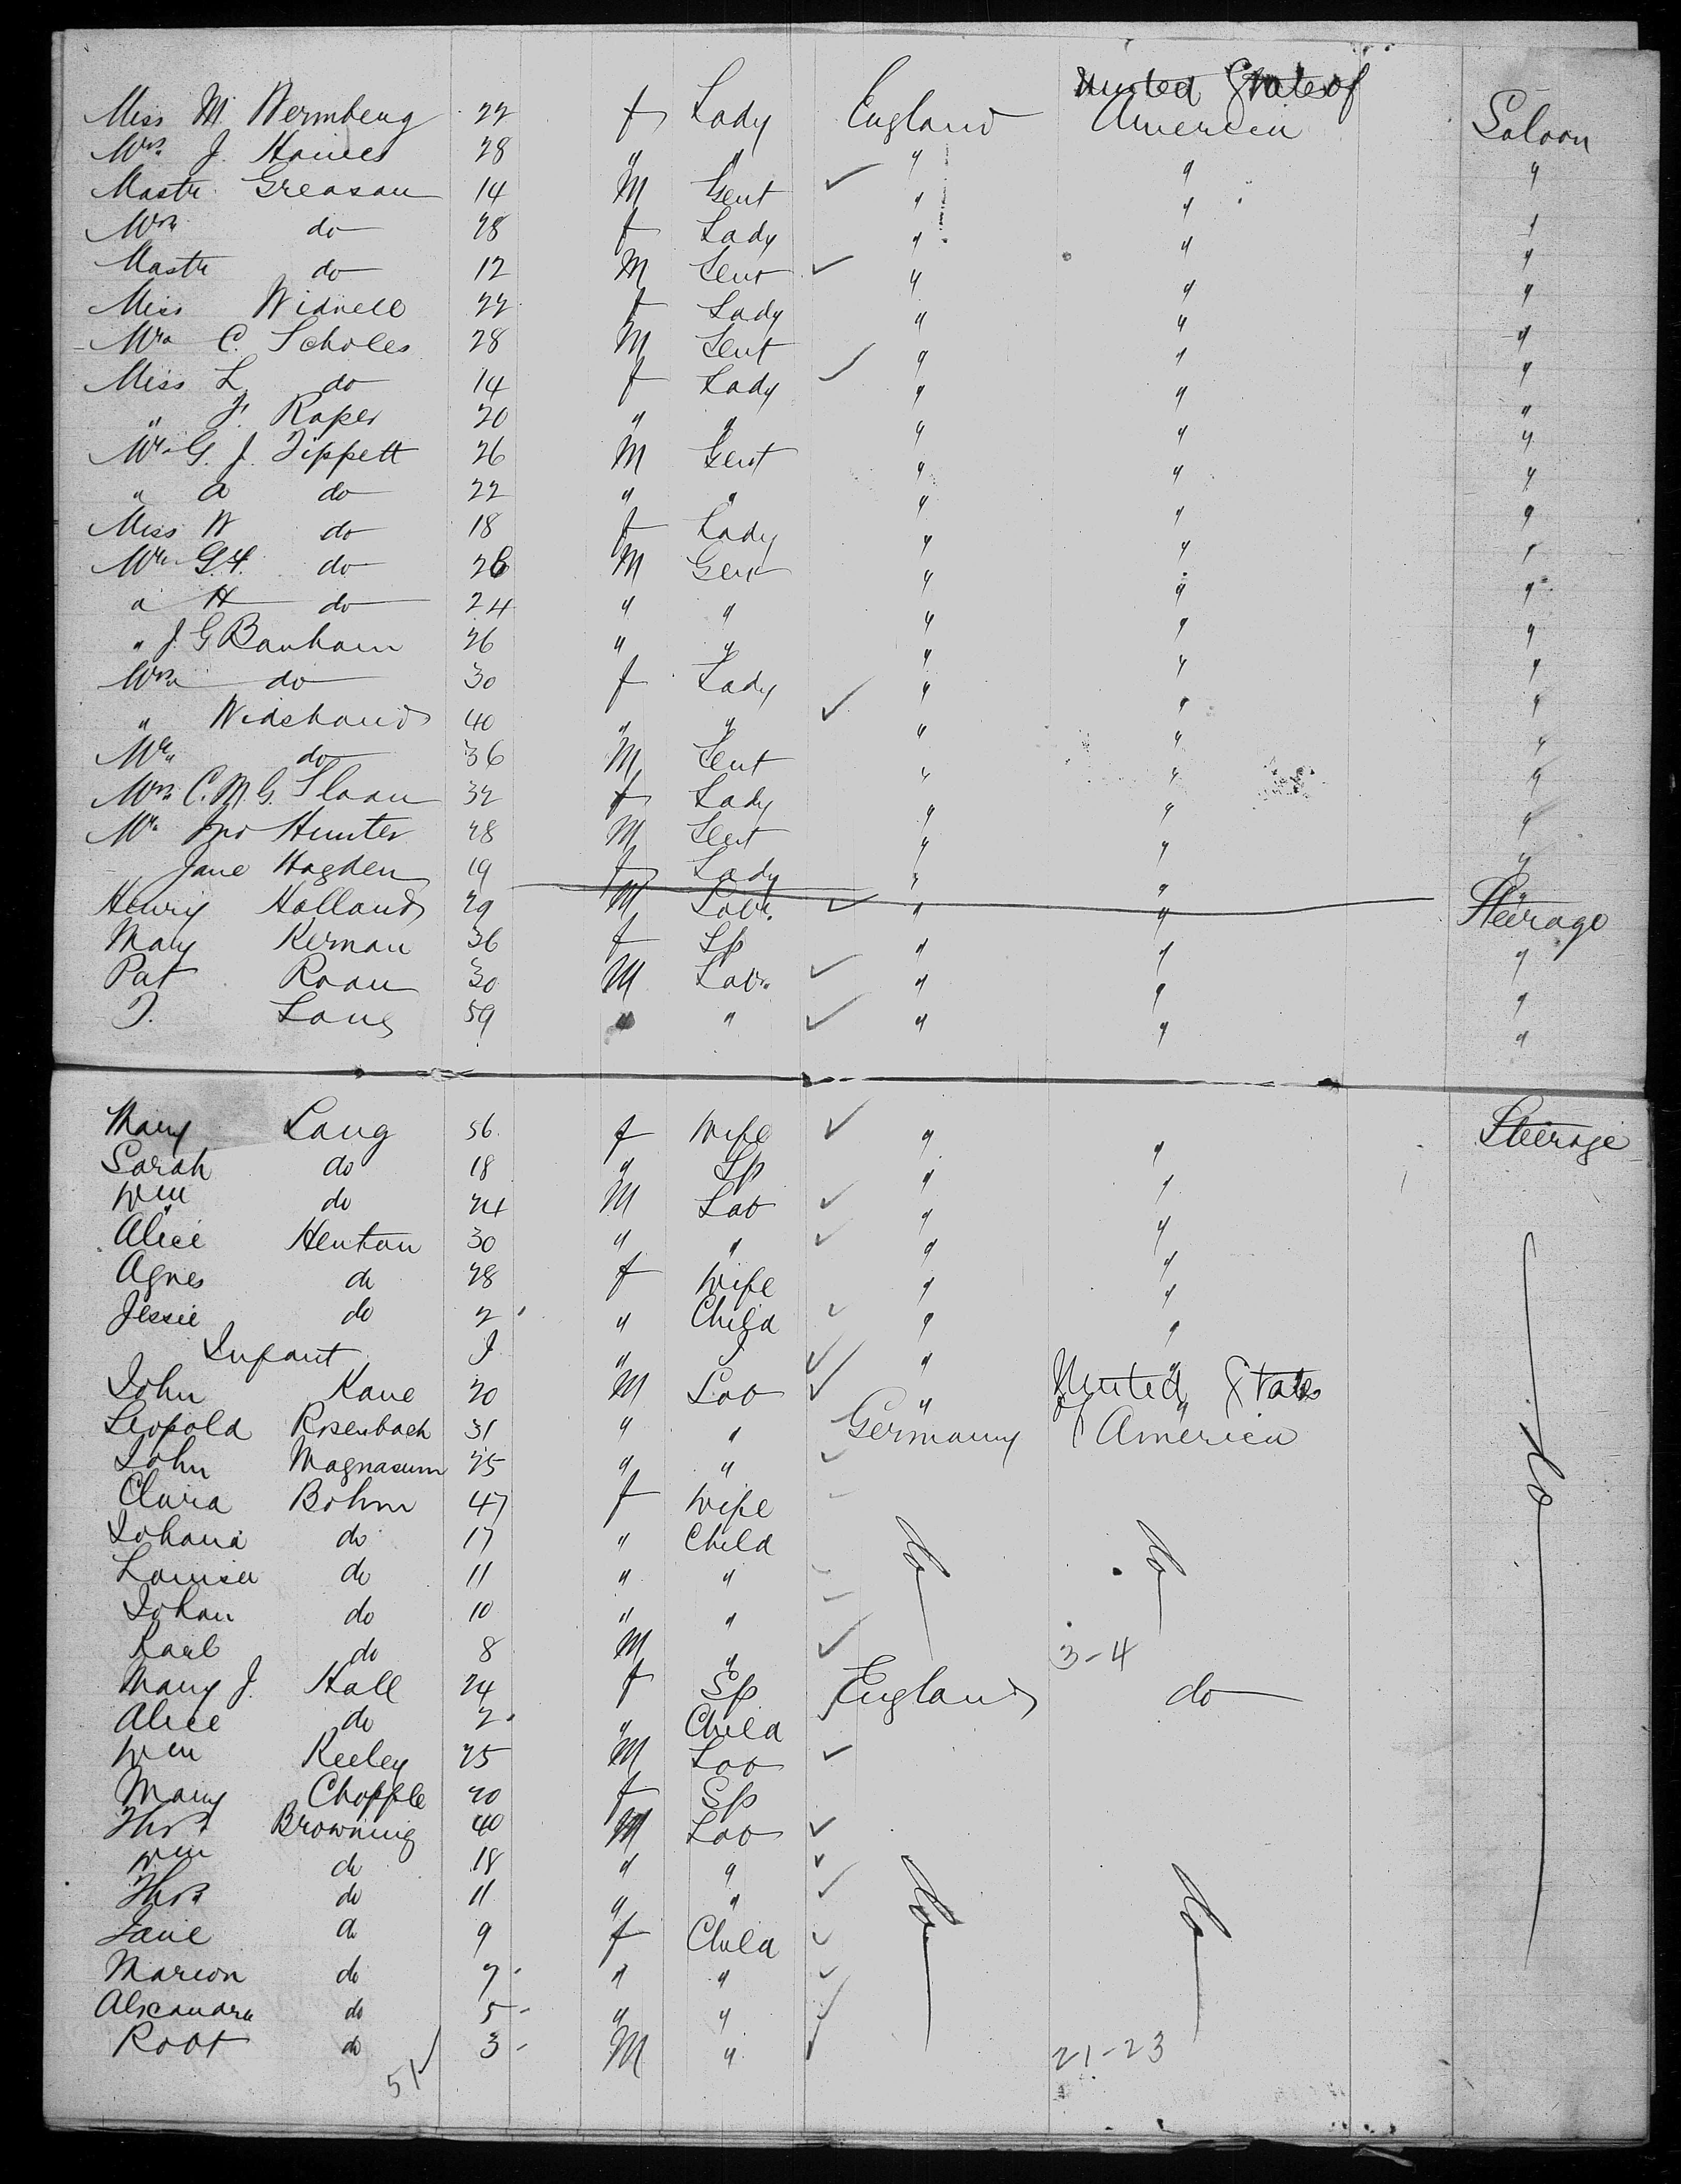 United States of
Miss M. Wermbeng 22 f Lady England America Saloon
Mrs. J. Haines 28 " " " " "
Mastr Greasan 14 M Gent ✓ " " "
Mrs do 28 f Lady " " "
Mastr do 12 M Gent ✓ " " "
Miss Widnell 22 f Lady " " "
Mr C. Scholes 28 M Gent " " "
Miss L do 14 f Lady ✓ " " "
" F. Raper 20 " " " " "
Mr G. J. Tippett 26 M Gent " " "
" A do 22 " " " " "
Miss W do 18 f Lady " " "
Mr G.H. do 26 M Gent " " "
" H do 24 " " " " "
" J. G Banham 26 " " " " "
Mrs do 30 f Lady " " "
" Widshand 40 " " ✓ " " "
Mr do 36 M Gent " " "
Mrs. C. M. G. Sloan 32 f Lady " " "
Mr Jno Hunter 28 M Gent " " "
Jane Hogden 19 f Lady " " "
Henry Holland 29 M Labr. ✓ " " Steerage
Mary Kernan 36 f Sp " " "
Pat Roan 30 M Labr. ✓ " " "
T. Lang 59 " " ✓ " " "
Mary Lang 56 f Wife ✓ " " Steerage
Sarah do 18 " Sp " "
Wm do 24 M Lab ✓ " "
Alice Henton 30 " " ✓ " "
Agnes do 28 f Wife " "
Jessie do 2 " Child ✓ " "
Infant I " I ✓ " "
John Kane 20 M Lab ✓ " United States
Leopold Rosenbach 31 " " Germany of America do
John Magnasum 25 " " ✓
Clara Bohm 47 f Wife
Johana do 17 " Child do do
Louisa do 11 " "
Johan do 10 " "
Karl do 8 M " ✓ 3-4
Mary J. Hall 24 f Sp England do
Alice do 2 " Child ✓
Wm Keeley 25 M Lab ✓
Mary Chopple 20 f Sp
Thos. Browning 40 M Lab ✓
Wm do 18 " " ✓ do do
Thos do 11 " " ✓
Jane do 9 f Child ✓
Marion do 7 " " ✓
Alexandra do 5 - " " ✓
Robt do 3 - M " ✓ 21-23
51